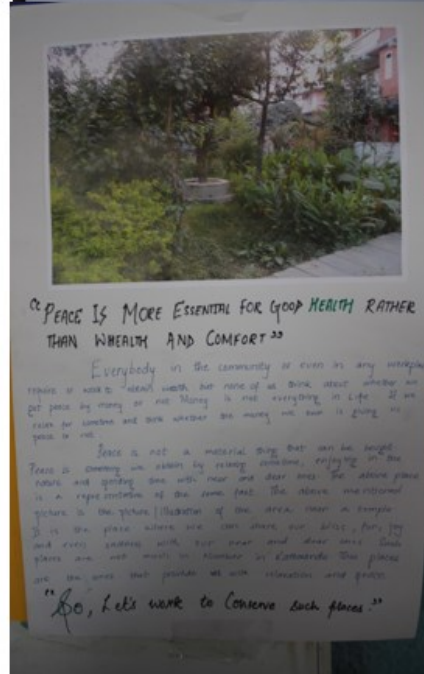 “PEACE IS MORE ESSENTIAL FOR GOOD HEALTH RATHER
THAN WHEALTH AND COMFORT”
Everybody in the community or even in any workplace
require or want to obtain wealth but none of us think about whether we
get peace by money or not Money is not everything in Life If we
relax for sometime and think whether the money we own is giving us
peace or not.
Peace is not a material thing that can be bought.
Peace is something we obtain by relaxing sometime, enjoying in the
nature and spending time with near and dear ones. The above place
is a representative of the same fact The above mentioned
picture is the picture/illustration of the area near a temple
It is the place where we can share our bliss, fun, joy
and even sadness with our near and dear ones Such
places are not much in Number in Kathmandu This places
are the ones that provides us with relaxation and peace.
“So, Let's work to Conserve such places.”